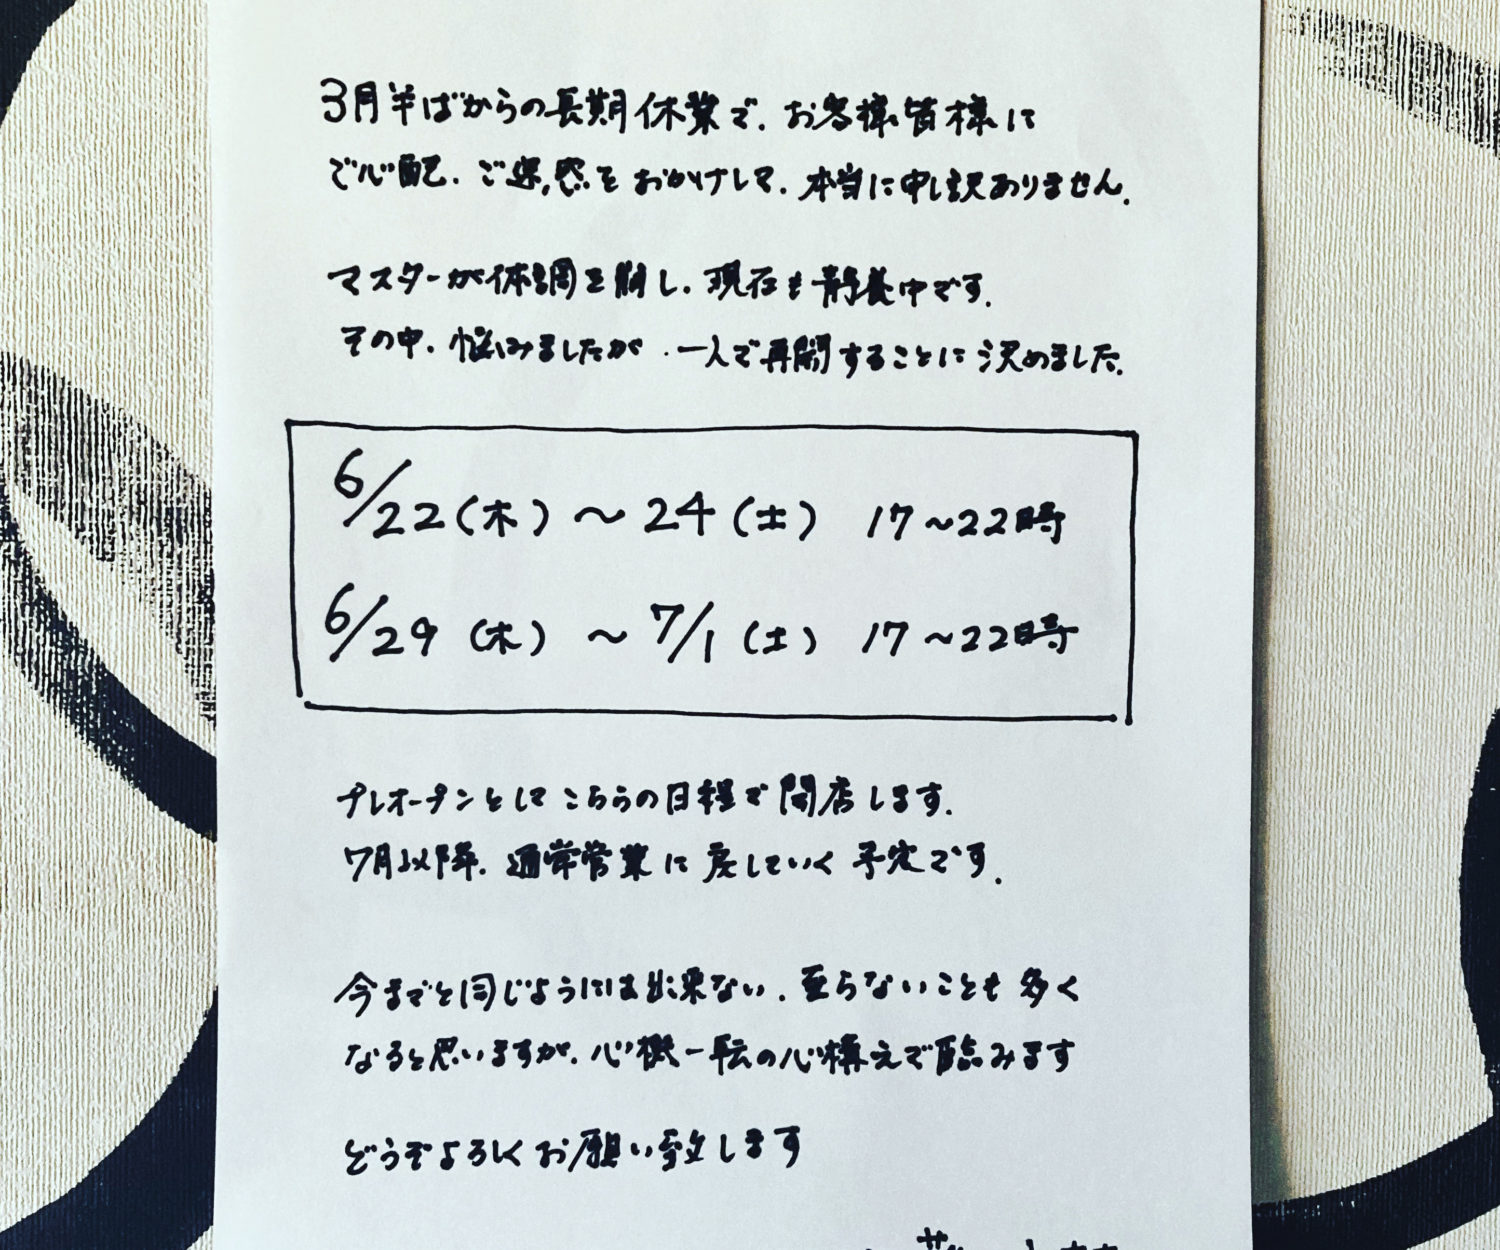 3月半ばからの長期休業で、お客様皆様に
ご心配、ご迷惑をおかけして、本当に申し訳ありません。
マスターが体調を崩し、現在も静養中です。
その中、悩みましたが、一人で再開することに決めました。
6/22(木)～24(土) 17～22時
6/29(木)～7/1(土) 17～22時
プレオープンとしてこちらの日程で開店します。
7月以降、通常営業に戻していく予定です。
今までと同じようには出来ない、至らないことも多く
なると思いますが、心機一転の心構えで臨みます
どうぞよろしくお願い致します